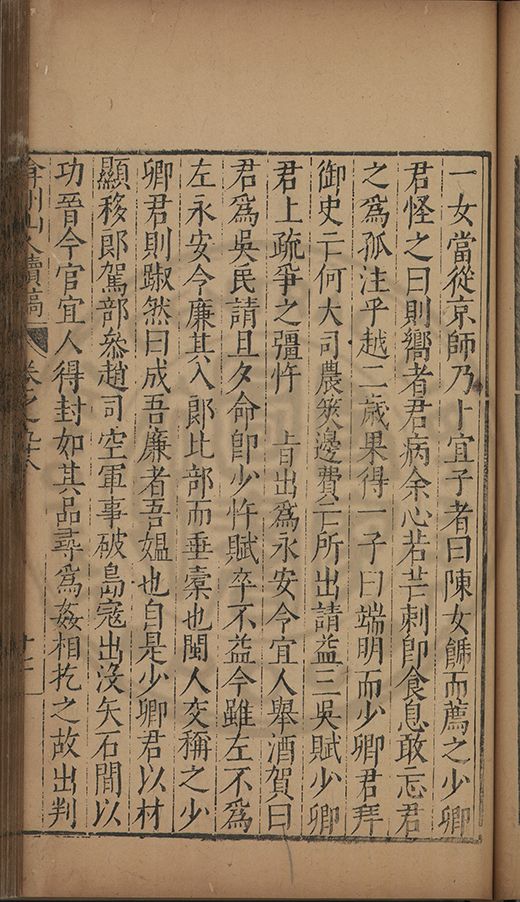 一女當從京師乃卜宜子者曰陳女飾而薦之少卿
君怪之曰則嚮者君病余心若芒刺即食息敢忘君
之為孤注乎越二歲果得一子曰端明而少卿君拜
御史亡何大司農筴邊費亡所出請益三吳賦少卿
君上疏爭之彊忤　旨出為永安令宜人舉酒賀曰
君為吳民請且夕命即少忤賦卒不益今雖左不為
左永安令廉其入郎比部而垂橐也閩人交稱之少
卿君則踧然曰成吾廉者吾媼也自是少卿君以材
顯移郎駕部叅趙司空軍事破島寇出沒矢石間以
功晉今官宜人得封如其品尋為姦相扢之故出判
弇州山人續稿 卷之九十八